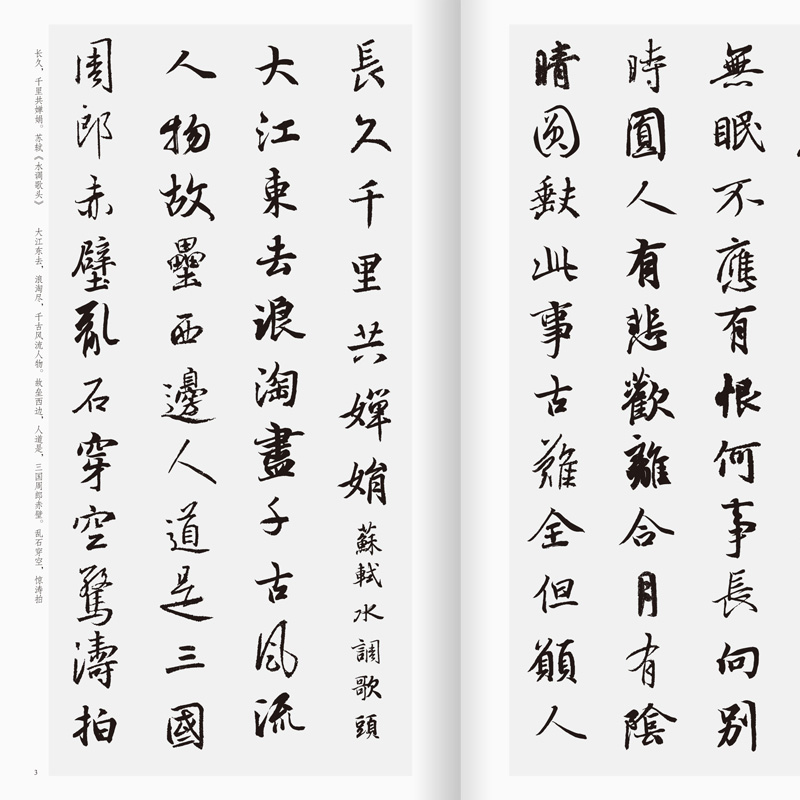 無眠不應有恨何事長向別
時圓人有悲歡離合月有陰
晴圓缺此事古難全但願人
長久千里共嬋娟蘇軾水調歌頭
大江東去浪淘盡千古風流
人物故壘西邊人道是三國
周郎赤壁亂石穿空驚濤拍
长久，千里共婵娟。苏轼《水调歌头》　大江东去，浪淘尽，千古风流人物。故垒西边，人道是，三国周郎赤壁。乱石穿空，惊涛拍
3